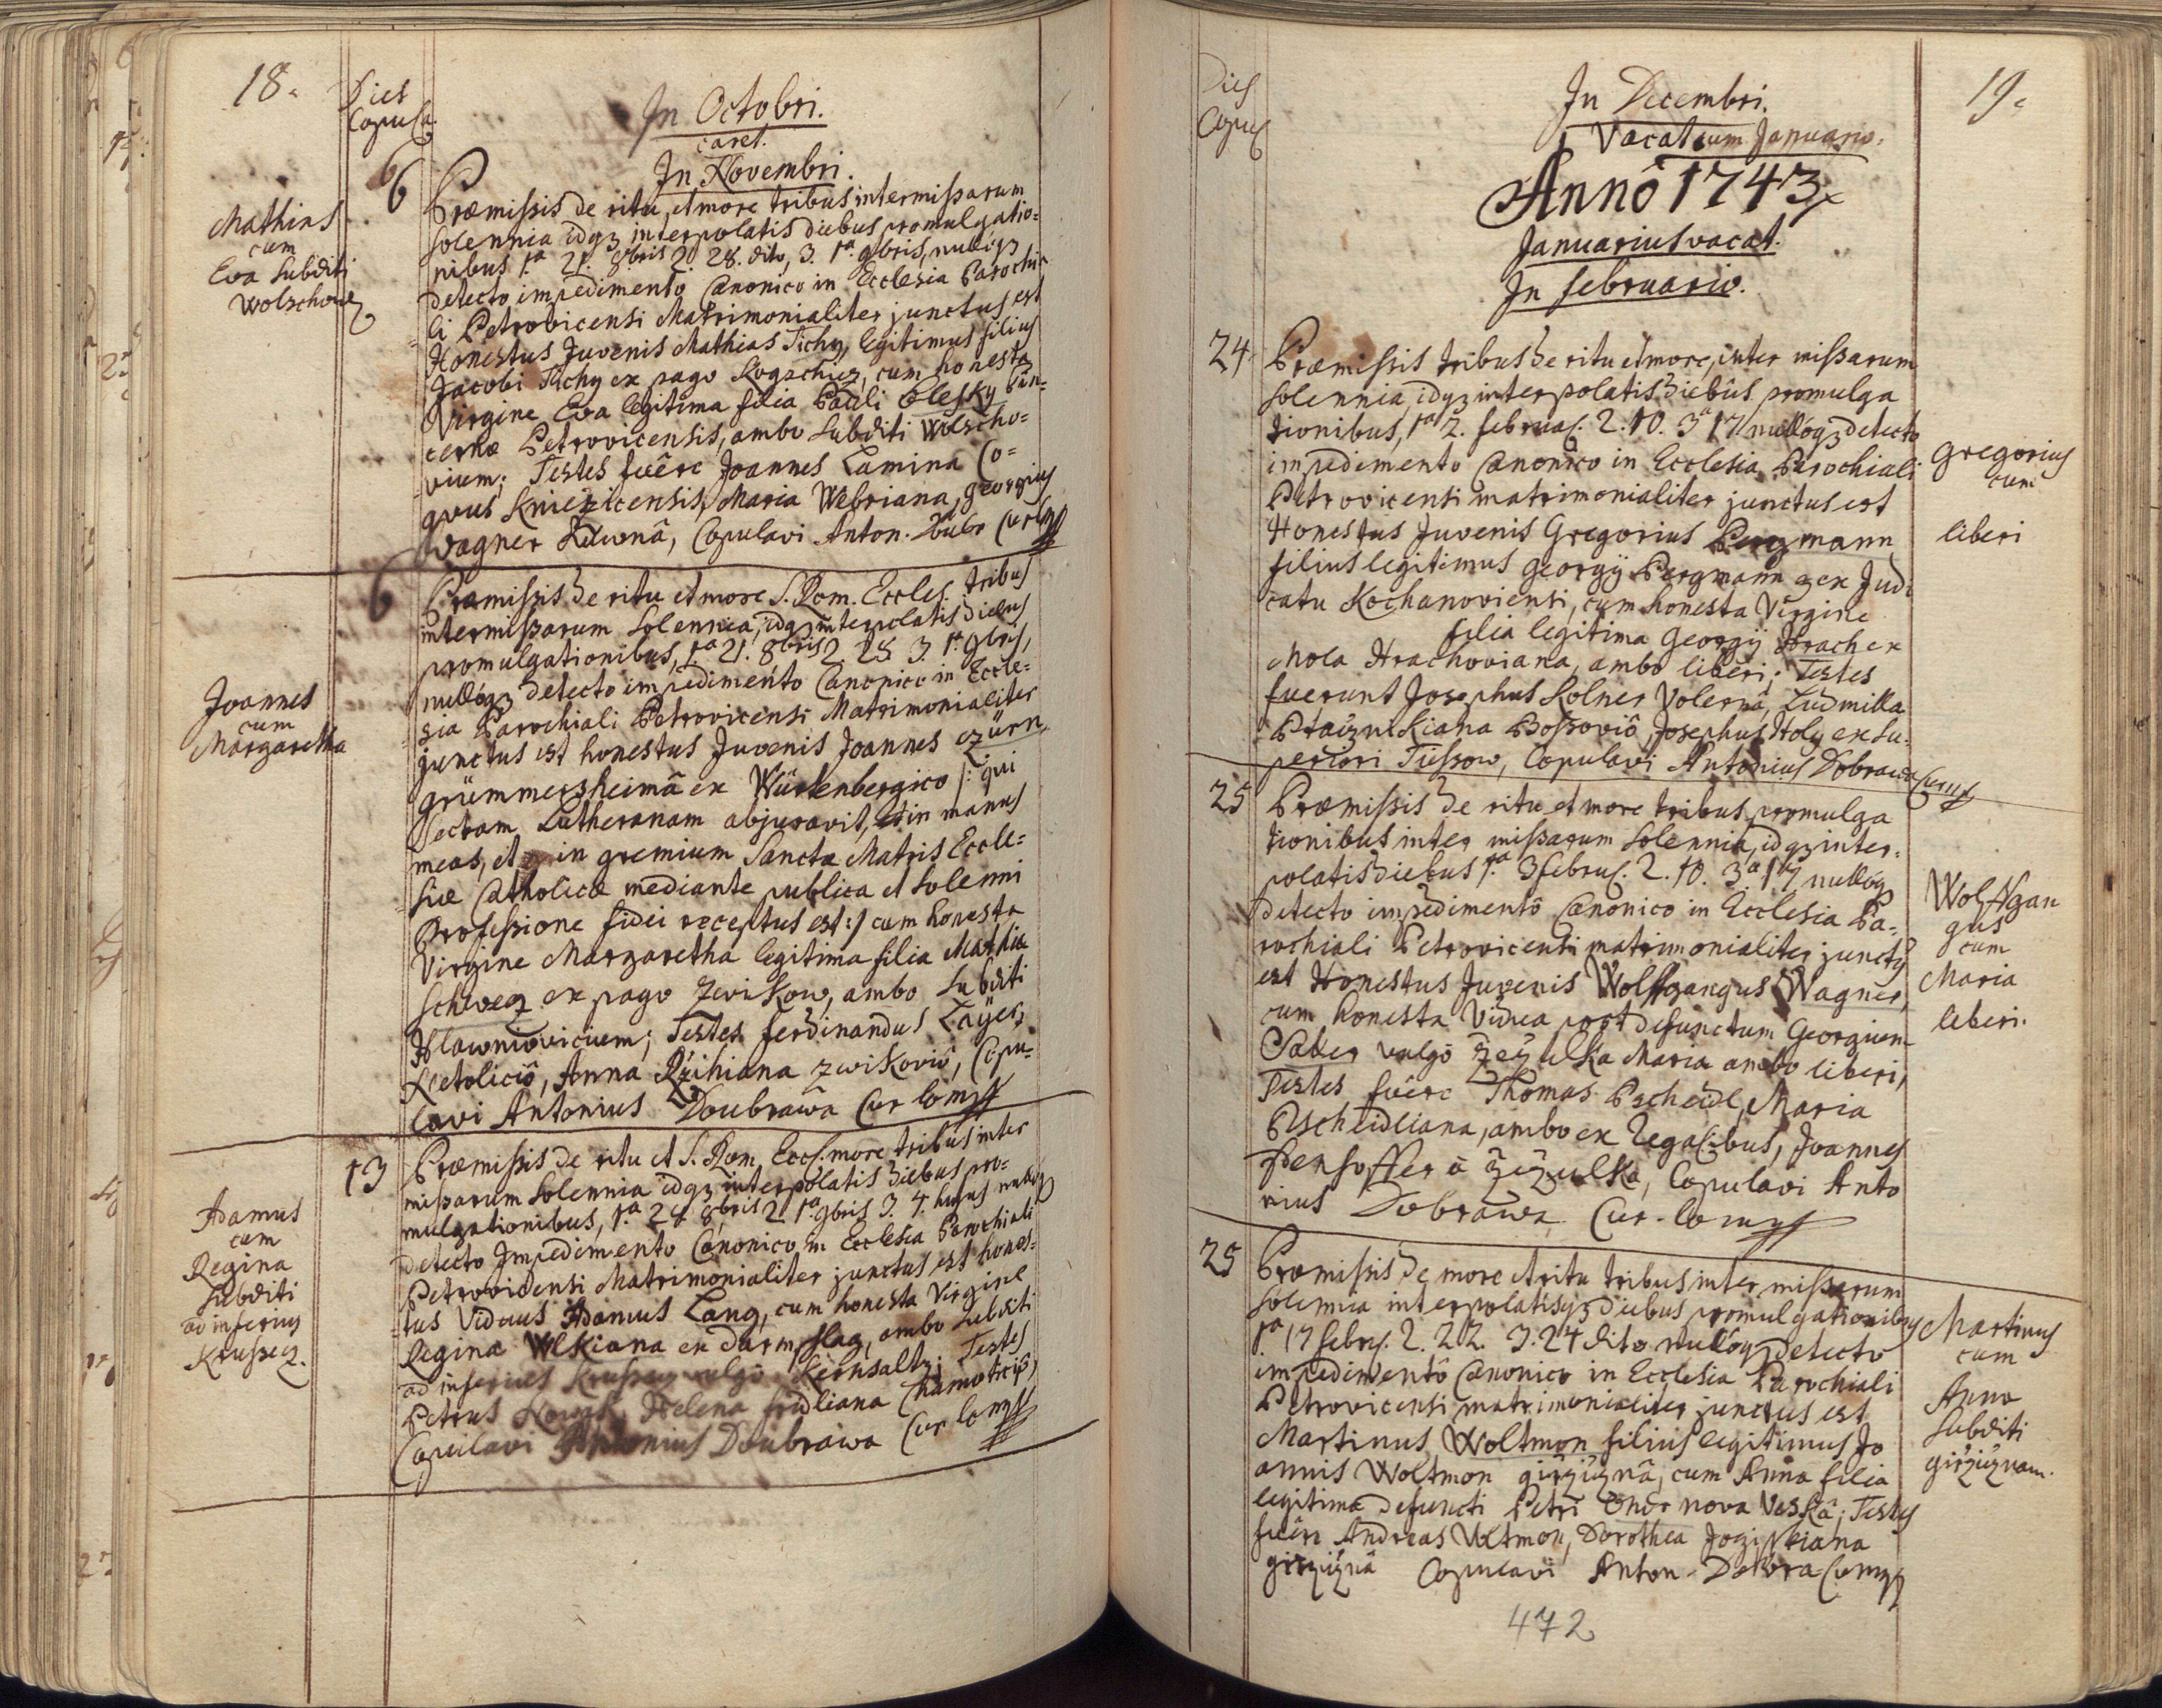 18.
Dies
Copula.
In Octobri.
caret.
In Novembri.
Mathias
cum
Eva Subditi
Wolschov
6
Præmissis de ritu, et more tribus inter missarum
solennia idq3 interpolatis diebus promulgatio=
nibus 1.a 21. 8bris 2. 28. dito, 3. 1.a 9bris, nulloq3
detecto impedimento Canonico in Ecclesia Parochia
li Petrovicensi Matrimonialiter junctus est
Honestus Juvenis Mathias Tichy, legitimus filius
Jacobi Tichy ex pago Kogschiez, cum honesta
Virgine Eva legitima filia Pauli Olesky Pin=
cernæ Petrovicensis, ambo Subditi Wolscho=
vium; Testes fuêre Joannes Lamina Co=
quus Kniezicensis, Maria Webriana, Georgius
Wagner Kawnâ, Copulavi Anton. Dubr Cur
Joannes
cum
Margaretha
6
Præmissis de ritu et more S. Rom. Eccles. tribus
inter missarum Solennia, idq3 interpolatis diebus
promulgationibus, 1.a 21. 8bris 2. 28. 3. 1.a 9bris,
nulloq3 detecto impedimento Canonico in Eccle=
sia Parochiali Petrovicensi Matrimonialiter
junctus est honestus Juvenis Joannes czürn
Grümmersheimâ ex Würtenbergico /: qui
Sectam Lutheranam abjuravit, et in manus
meas, et in gremium Sanctæ Matris Eccle=
siæ Catholicæ mediante publica et Solenni
Professione fidei receptus est :/ cum honesta
Virgine Margaretha legitima filia Mathiæ
Schwez ex pago Zwikow, ambo Subditi
Hlawniovicium; Testes Ferdinandus Layer,
Netoliciô, Anna Řzihiana Zwikoviô, Copu=
lavi Antonius Doubrawa Cur
Adamus
cum
Regina
Subditi
ad inferius
Krussecz.
13
Præmissis de ritu et S. Rom. Eccl. more tribus inter
missarum Solennia idq3 interpolatis diebus pro=
mulgationibus, 1.a 28 8bris 2. 1.a 9bris 3. 4. hujus nulloq3
detecto Impedimento Canonico in Ecclesia Parochiali
Petrovicensi Matrimonialiter junctus est hones=
tus Viduus Adamus Lang, cum honesta Virgine
Regina Wlkiana ex Darmschlag, ambo Subditi
ad inferius Krussecz vulgô Kernsaltz; Testes
Petrus Nowak, Helena fridliana Chamoticiô,
Copulavi Antonius Doubrawa Cur
Dies
Copul
In Decembri.
Vacat cum Januario.
19.
Annô 1743
Januarius vacat.
In Februario.
24
Præmissis tribus de ritu et more, inter missarum
Solennia, idq3 interpolatis diebus promulga
tionibus, 1.a 2. februar. 2. 10. 3a 17 nulloq3 detecto
impedimento Canonico in Ecclesia Parochiali
Petrovicensi matrimonialiter junctus est
Honestus Juvenis Gregorius Pergmann
filius legitimus Georgÿ Pergmann ex Judi
catu Kochanoviensi, cum honesta Virgine
filia legitima Georgÿ Hrach ex
Mola Hrachoviana, ambo liberi; Testes
fuerunt Josephus Solner Volernâ, Ludmilla
Ptaiznikiana Bossoviô, Josephus Holy ex Su=
periori Tiessow, Copulavi Antonius Dobrawa Cur
Gregorius
cum
liberi
25
Præmissis de ritu et more tribus promulga
tionibus inter missarum Solennia, idq3 inter=
polatis diebus 1.a 3 febru. 2. 10. 3.a 17 nulloq3
detecto impedimentô Canonico in Ecclesia Pa=
rochiali Petrovicensi matrimonialiter junctus
est Honestus Juvenis Wolffgangus Wagner,
cum honesta Vidua post defunctum Georgium
Sader vulgô Zezulka Maria ambo liberi,
Testes fuêre Thomas Pscheidl, Maria
Pscheidliana, ambo ex Regalibus, Joannes
Denhoffer â Zezulka, Copulavi Anto
nius Dobrawa Cur.
Wolffgan
gus
cum
Maria
liberi.
25
Præmissis de more et ritu tribus inter missarum
Solennia interpolatisq3 diebus promulgationibus
1.a 17 febru. 2. 22. 3. 24 dito nulloq3 detecto
impedimentô Canonico in Ecclesia Parochiali
Petrovicensi matrimonialiter junctus est
Martinus Woltmon filius legitimus Jo
annis Woltmon girziznâ, cum Anna filia
legitima defuncti Petri Ondr nova Veskâ; Testes
fuêre Andreas Voltmon, Dorothea
girziznâ Copulavi Anton. Dobra
Martinus
cum
Anna
Subditi
girziznam.
472